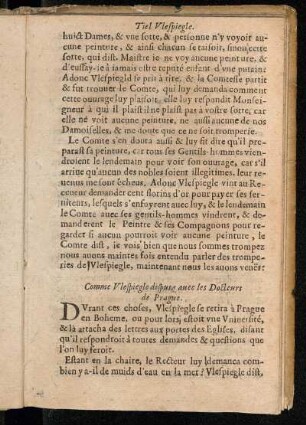 Tiel Vlespiegle.
huict Dames, & vne sotte, & personne n'y voyoir au-
cune peinture, & ainsi chacun se taisoit, sinon cette
sotte, qui dist. Maistre ie ne voy aucune peinture, &
d'eussay-ie à iamais estre reputée enfant d'vne putain:
Adonc Vlespiegle se prit à rire, & la Comtesse partit
& fut trouuer le Comte, qui luy demanda comment
cette ouurage luy plaisoit, elle luy respondit Monsei-
gneur à qui il plaist il ne plaist pas à vostre sotte, car
elle ne voit aucune peinture, ne aussi aucune de nos
Damoiselles, & me doute que ce ne soit tromperie.
Le Comte s'en douta aussi & luy fit dire qu'il pre-
parast sa peinture, car tous ses Gentils-hommes vien-
droient le lendemain pour voir son ouurage, car s'il
arriue qu'aucun des nobles soient illegitimes, leur re-
uenus me sont écheus, Adonc Vlespiegle vint au Re-
ceueur demander cent florins d'or pour payer ses ser-
uiteurs, lesquels s'enfuyrent auec luy, & le lendemain
le Comte auec ses gentils-hommes vindrent, & de-
manderent le Peintre & ses Compagnons pour re-
gardet si aucun pourroit voir aucune peinture, le
Comte dist, ie vois bien que nous sommes trompez
nous auons maintes fois entendu parler des trompe-
ries de Vlespiegle, maintenant nous les auons venës:
Comme Vlespiegle dispute auec les Docteurs
de Prague.
DVrant ces choses, Vlespiegle se retira à Prague
en Boheme, ou pour lors, estoit vne Vniuersité,
& là attacha des lettres aux portes des Eglises, disant
qu'il respondroit à toutes demandes & questions que
l'on luy feroit.
Estant en la chaire, le Recteur luy demanda com-
bien y a-il de muids d'eau en la mer? Vlespiegle dist,